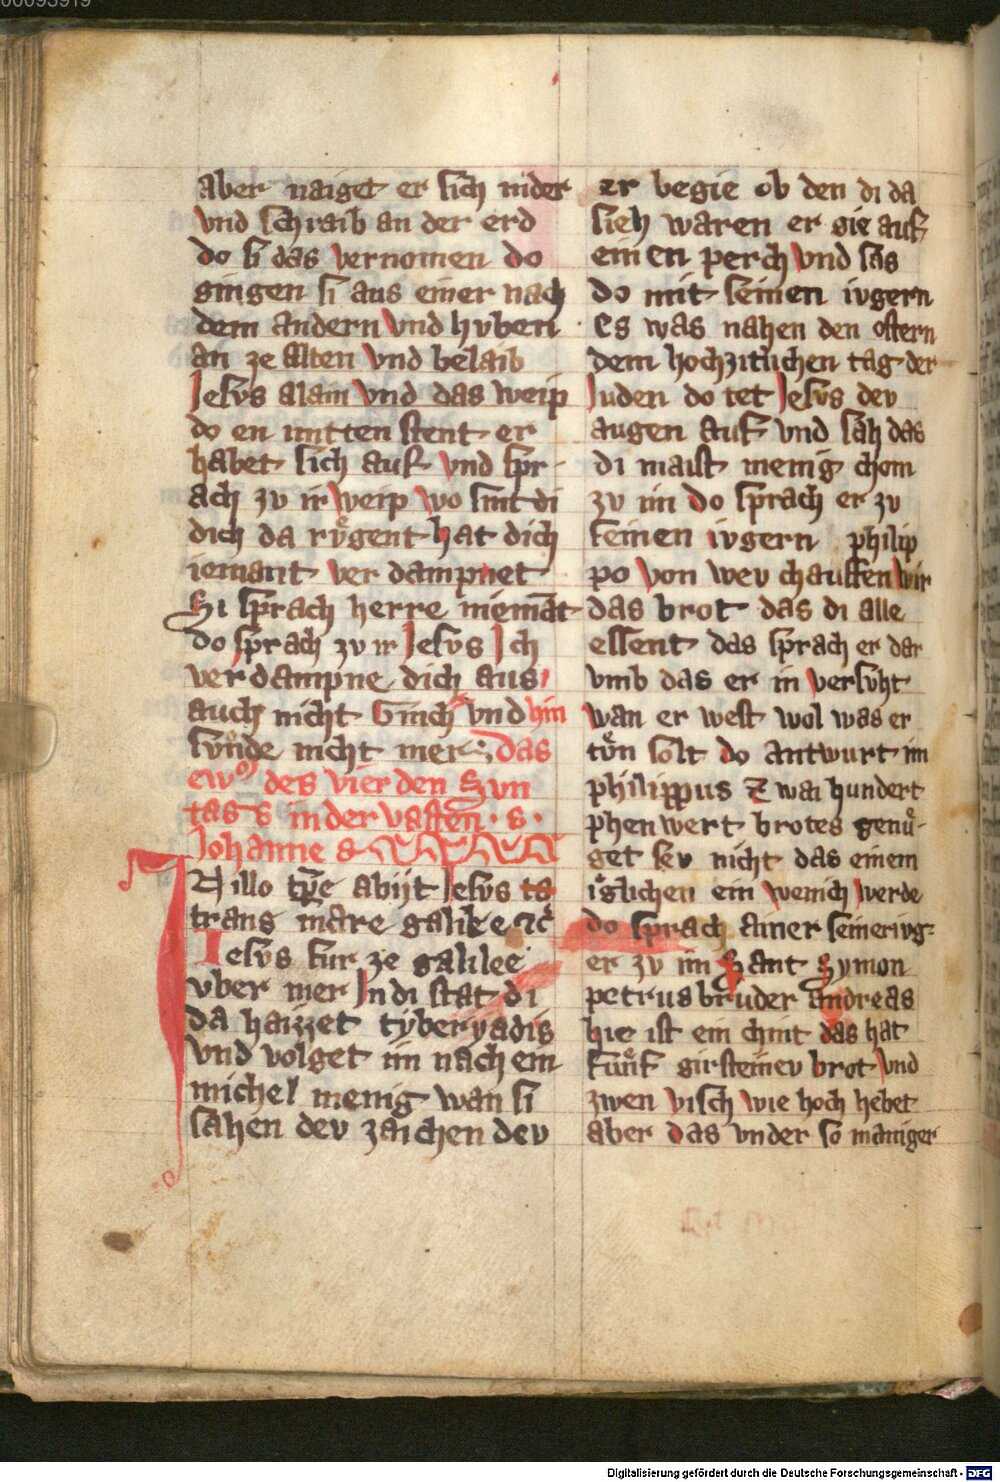 aber naiget er sich nider
vnd schraib an der erd
do si das vernomen do
gingen si aus einer nach
dem andern vnd hvben
an ze alten vnd belaib
Jesvs alain vnd das weip
do en mitten stent er
habet sich auf vnd spr
ach zv ir weip wo sint di
dich da rvͤgent hat dich
iemant ver dampnet
Si sprach herre niemāt
do sprach zv ir Jesvs Ich
verdampne dich aus
auch nicht Ginch vnd hin
svnde nicht mer das
ew des vierden Svn
tags in der vasten . s .
Johannes
In illo tp̄e abijt Jesvs
trans mare galilee ⁊c̄
Jesvs fur ze galilee
vber mer In di stat di
da haizzet tyberyadis
vnd volget im nach ein
michel menig wan si
sahen dev zaichen dev
er begie ob den di da
sieh waren er gie auf
einen perch vnd sas
do mit seinen ivgern
es was nahen den ostern
dem hochzitlichen tag der
Juden do tet Jesvs dev
augen auf vnd sah das
di maist menig chom
zv im do sprach er zv
seinen ivgern philip
po von wev chauffen wir
das brot das di alle
essent das sprach er dar
vmb das er in versvht
wan er west wol was er
tvͤn solt do antwurt im
philippus Zwai hundert
phenwert brotes genuͤ
get sev nicht das einem
iglichen ein wenich werde
do sprach ainer seiner ivg
er zv im Sant Symon
petrus bruder andreas
hie ist ein chint das hat
fuͤnf girsteinev brot vnd
zwen visch wie hoch hebet
aber das vnder so maniger
Digitalisierung gefördert durch die Deutsche Forschungsgemeinschaft - DFG